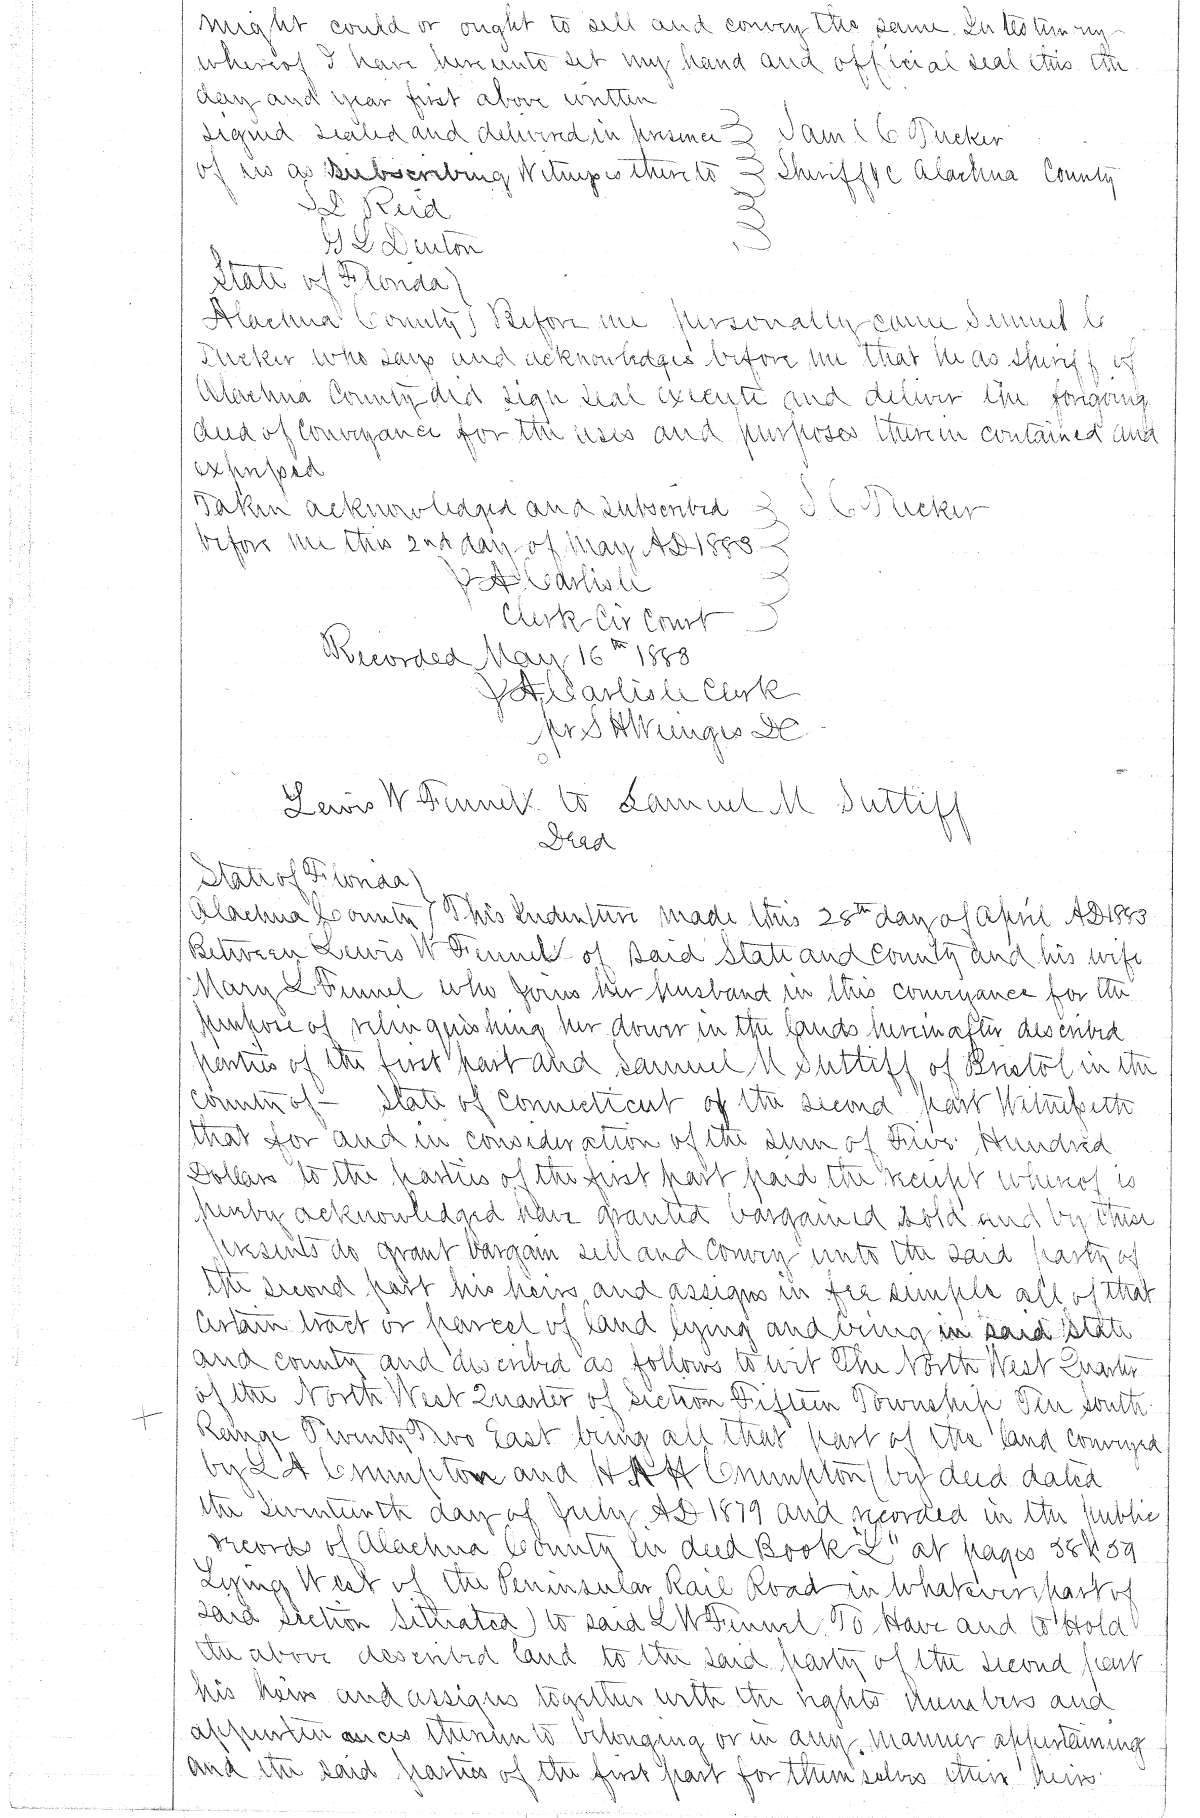 might could or ought to sell and convey the same. In testimony
whereof I have hereunto set my hand and official seal this the
day and year first above written
signed sealed and delivered in presence } Saml C Tucker
of us as subscribing Witnesses thereto } Sheriff &c Alachua County
Reid
G L Denton
State of Florida)
Alachua County) Before me personally came Samuel C
Tucker who says and acknowledges before me that he as Sheriff of
Alachua County did sign seal execute and deliver the forgoing
deed of Conveyance for the uses and purposes therein contained and
expressed
Taken acknowledged and subscribed } S C Tucker
before me this 2nd day of May AD 1883
J A Carlisle
Clerk Cir Court
Recorded May 16th 1883
J A Carlisle Clerk
pr S H Wienges DC
Lewis W Fennel to Samuel M Suttiff
Deed
State of Florida)
Alachua County) This Indenture made this 28th day of April AD 1883
Between Lewis W Fennel of said State and County and his wife
Mary L Fennel who joins her husband in this conveyance for the
purpose of relinquishing her dower in the lands hereinafter described
parties of the first part and Samuel M Suttiff of Bristol in the
County of – State of Connecticut of the second part Witnesseth
that for and in consideration of the sum of Five Hundred
Dollars to the parties of the first part paid the receipt whereof is
hereby acknowledged have granted bargained sold and by these
presents do grant bargain sell and convey unto the said party of
the second part his heirs and assigns in fee simple all of that
certain tract or parcel of land lying and being in said State
and county and described as follows to wit The North West Quarter
of the North West Quarter of Section Fifteen Township Ten South
Range Twenty Two East being all that part of the land conveyed
by L A Crumpton and H A H Crumpton (by deed dated
the Seventeenth day of July AD 1879 and recorded in the public
records of Alachua County in deed Book "L" at pages 58 & 59
Lying West of the Peninsular Rail Road in whatever part of
said section situated) to said L W Fennel To Have and to Hold
the above described land to the said party of the second part
his heirs and assigns together with the rights members and
appurtenances thereunto belonging or in any manner appertaining
and the said parties of the first part for themselves their heirs